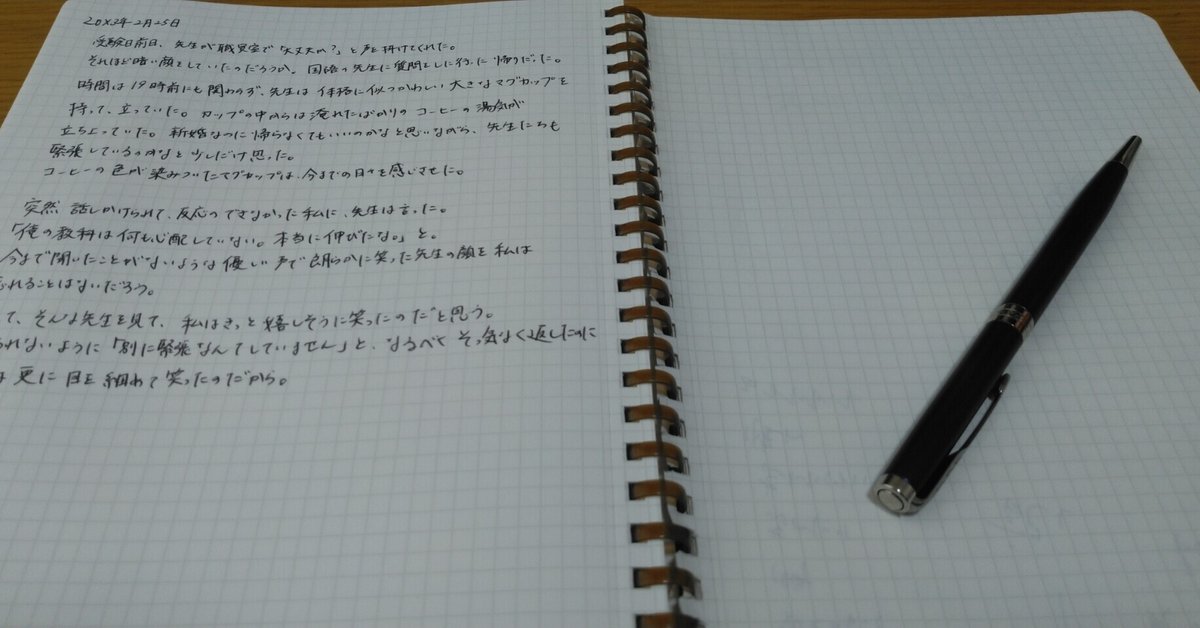 20X3年2月25日
受験日前日、先生が職員室で「大丈夫か?」と声を掛けてくれた。
それほど暗い顔をしていたのだろうか。国語の先生に質問をしに行った帰りだった。
時間は19時前にも関わらず、先生は体格に似つかわしい大きなマグカップを
持って、立っていた。カップの中からは淹れたばかりのコーヒーの湯気が
立ち上っていた。新婚なのに帰らなくてもいいのかなと思いながら、先生たちも
緊張しているのかなと少しだけ思った。
コーヒーの色が染みついたマグカップは、今までの日々を感じさせた。
突然話しかけられて、反応のできなかった私に、先生は言った。
「俺の教科は何も心配していない。本当に伸びたな。」と。
今まで聞いたことがないような優しい声で朗らかに笑った先生の顔を私は
れることはないだろう。
て、そんな先生を見て、私はきっと嬉しそうに笑ったのだと思う。
られないように「別に緊張なんてしていません」と、なるべくそっ気なく返したのに
更に目を細めて笑ったのだから。